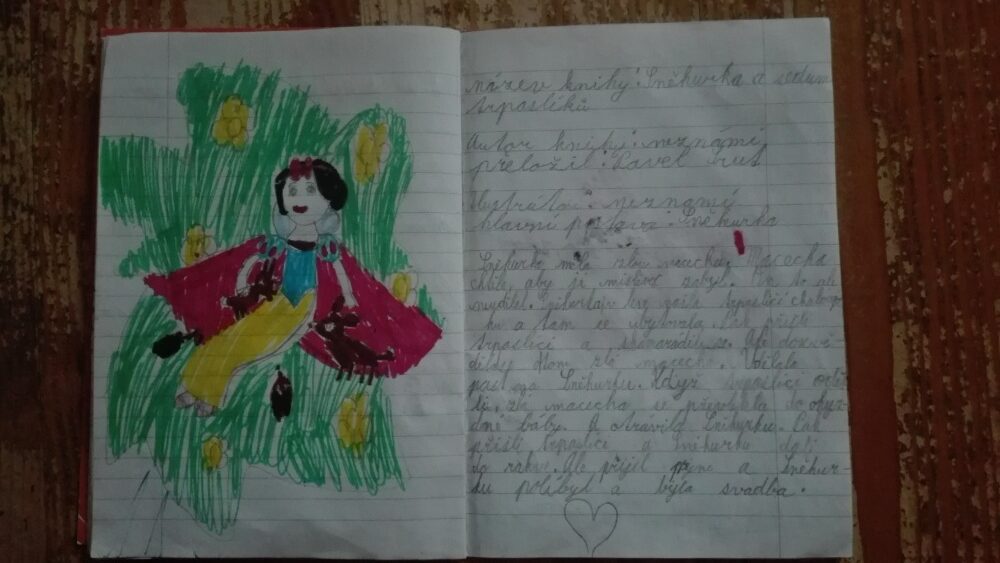 název knihy: Sněhurka a sedum
trpaslíků
Autor knihi: neznámí
přeložil: Pavel Šrut
Ilustrátoř: neznamí
hlavní postava: Sněhurka
Sněhurka měla zlou macechu. Macecha
chtěla, aby ji myslivec zabil. On to ale
neudělal. Sněhurka našla trpasličí chaloup-
ku a tam se ubytovala. Pak přišli
trpaslíci a skamarádili se. Ale dozvě-
děla o tom zlá macecha. Udělala
past na Sněhurku. Když trpaslíci odeš-
li, zlá macecha se přeměnila do
bábi. A otrávila Sněhurku. Pak
přišli trpaslíci a Sněhurku dali
do rakve. Ale přijel princ a Sněhur-
ku políbyl a byla svadba.